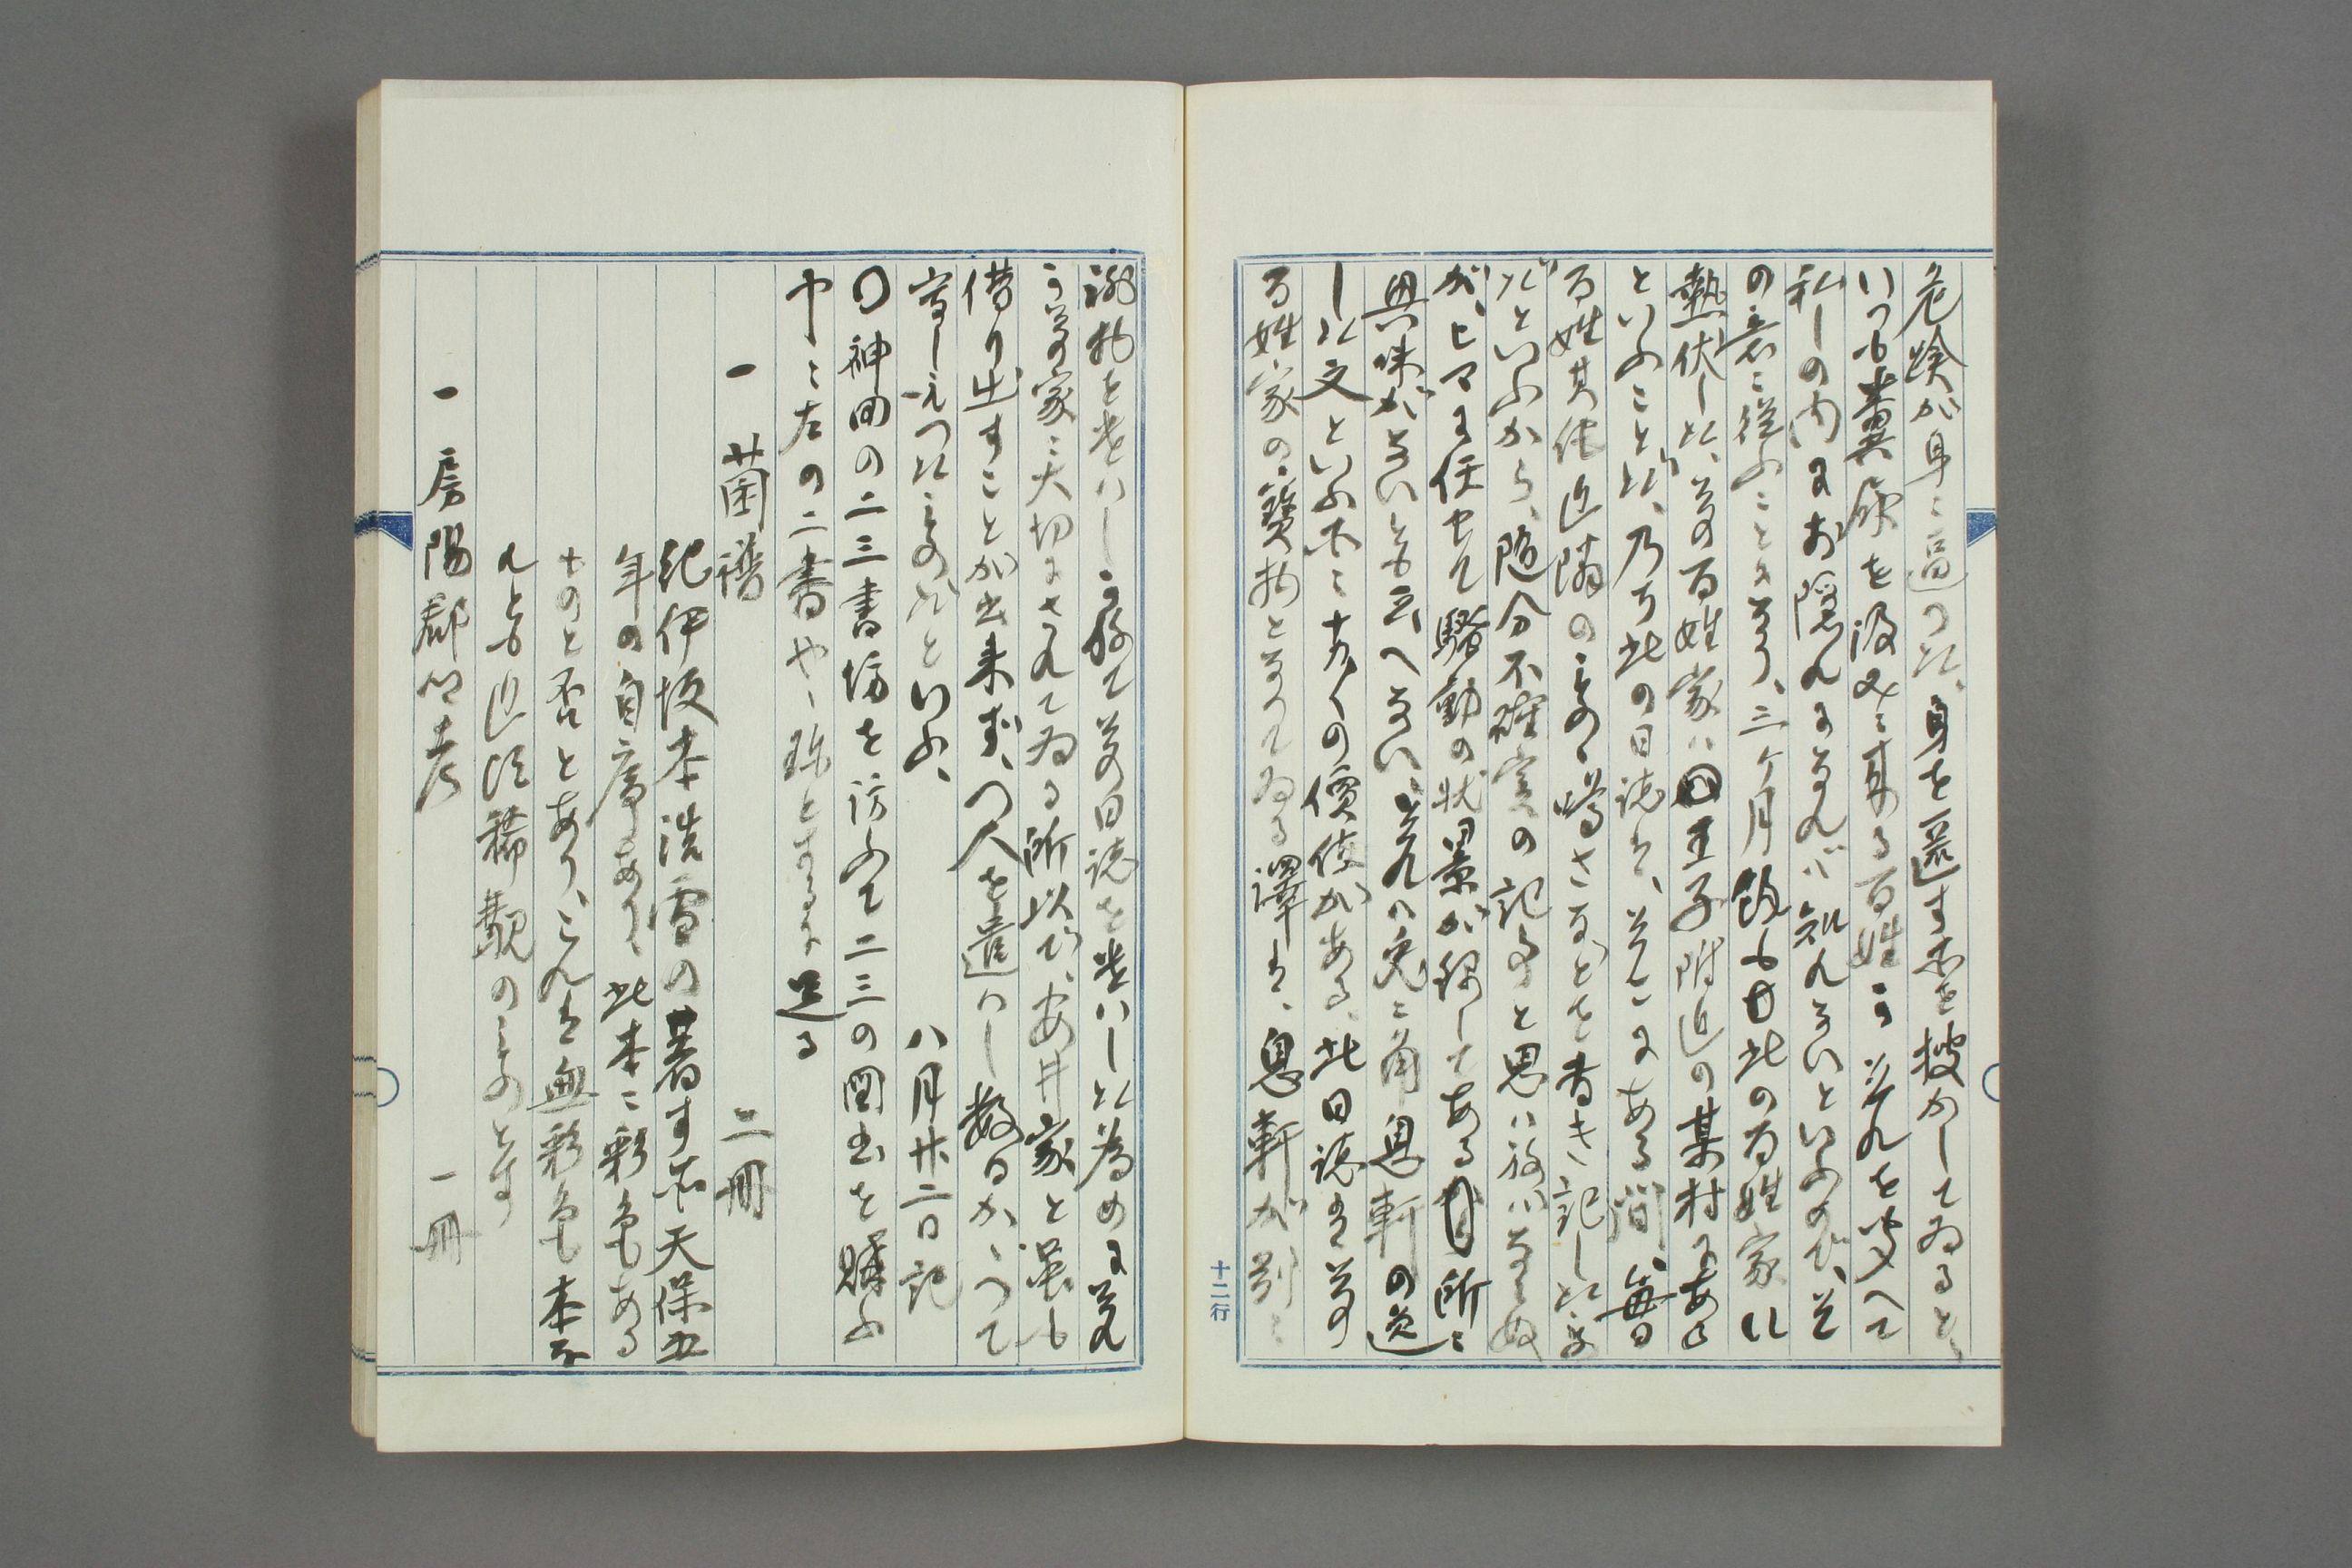 危険が身に逼つた、身を匿す所を捜かしてゐると、
いつも糞尿を汲みに来る百姓がそれを聞へて
私しの内にお隠れになれバ知れないといふので、そ
の意に従ふことになり、三ヶ月餘も此の百姓家に
熱伏した、其の百姓家ハ王子附近の某村にある
といふことだ、乃ち此の日誌は、そこにある間、毎日
百姓其他近隣のものゝ噂さなどを書き記したま
だといふから、随分不確実の記事と思ハねバならぬ
が、ヒマに任せて騒動の状景が録してある所に
興味がないとも云へない、それハ兎に角息軒の遺
した文といふ所に十分の價値がある、此日誌は其
百姓家の寶物となつてゐる譯は、息軒が別に
禮物を遣ハし難て其の日誌を遣ハした為めにそれ
が其家に大切にされてゐる所以で、安井家と雖も
借り出すことが出来ず、人を遣ハし数日かゝつて
寫しえつたものだといふ、
八月廿二日記
〇神田の二三書坊を訪ふて二三の図書を購ふ
中に左の二書やゝ珎とするに足る
一 菌譜 二冊
紀伊坂本浩雪の著す所天保五
年の自序あり、此本に彩色ある
ものと否とあり、これは無彩色本な
れとも近頃稀覯のものとす
一 房陽郡郷考 一冊
十二行